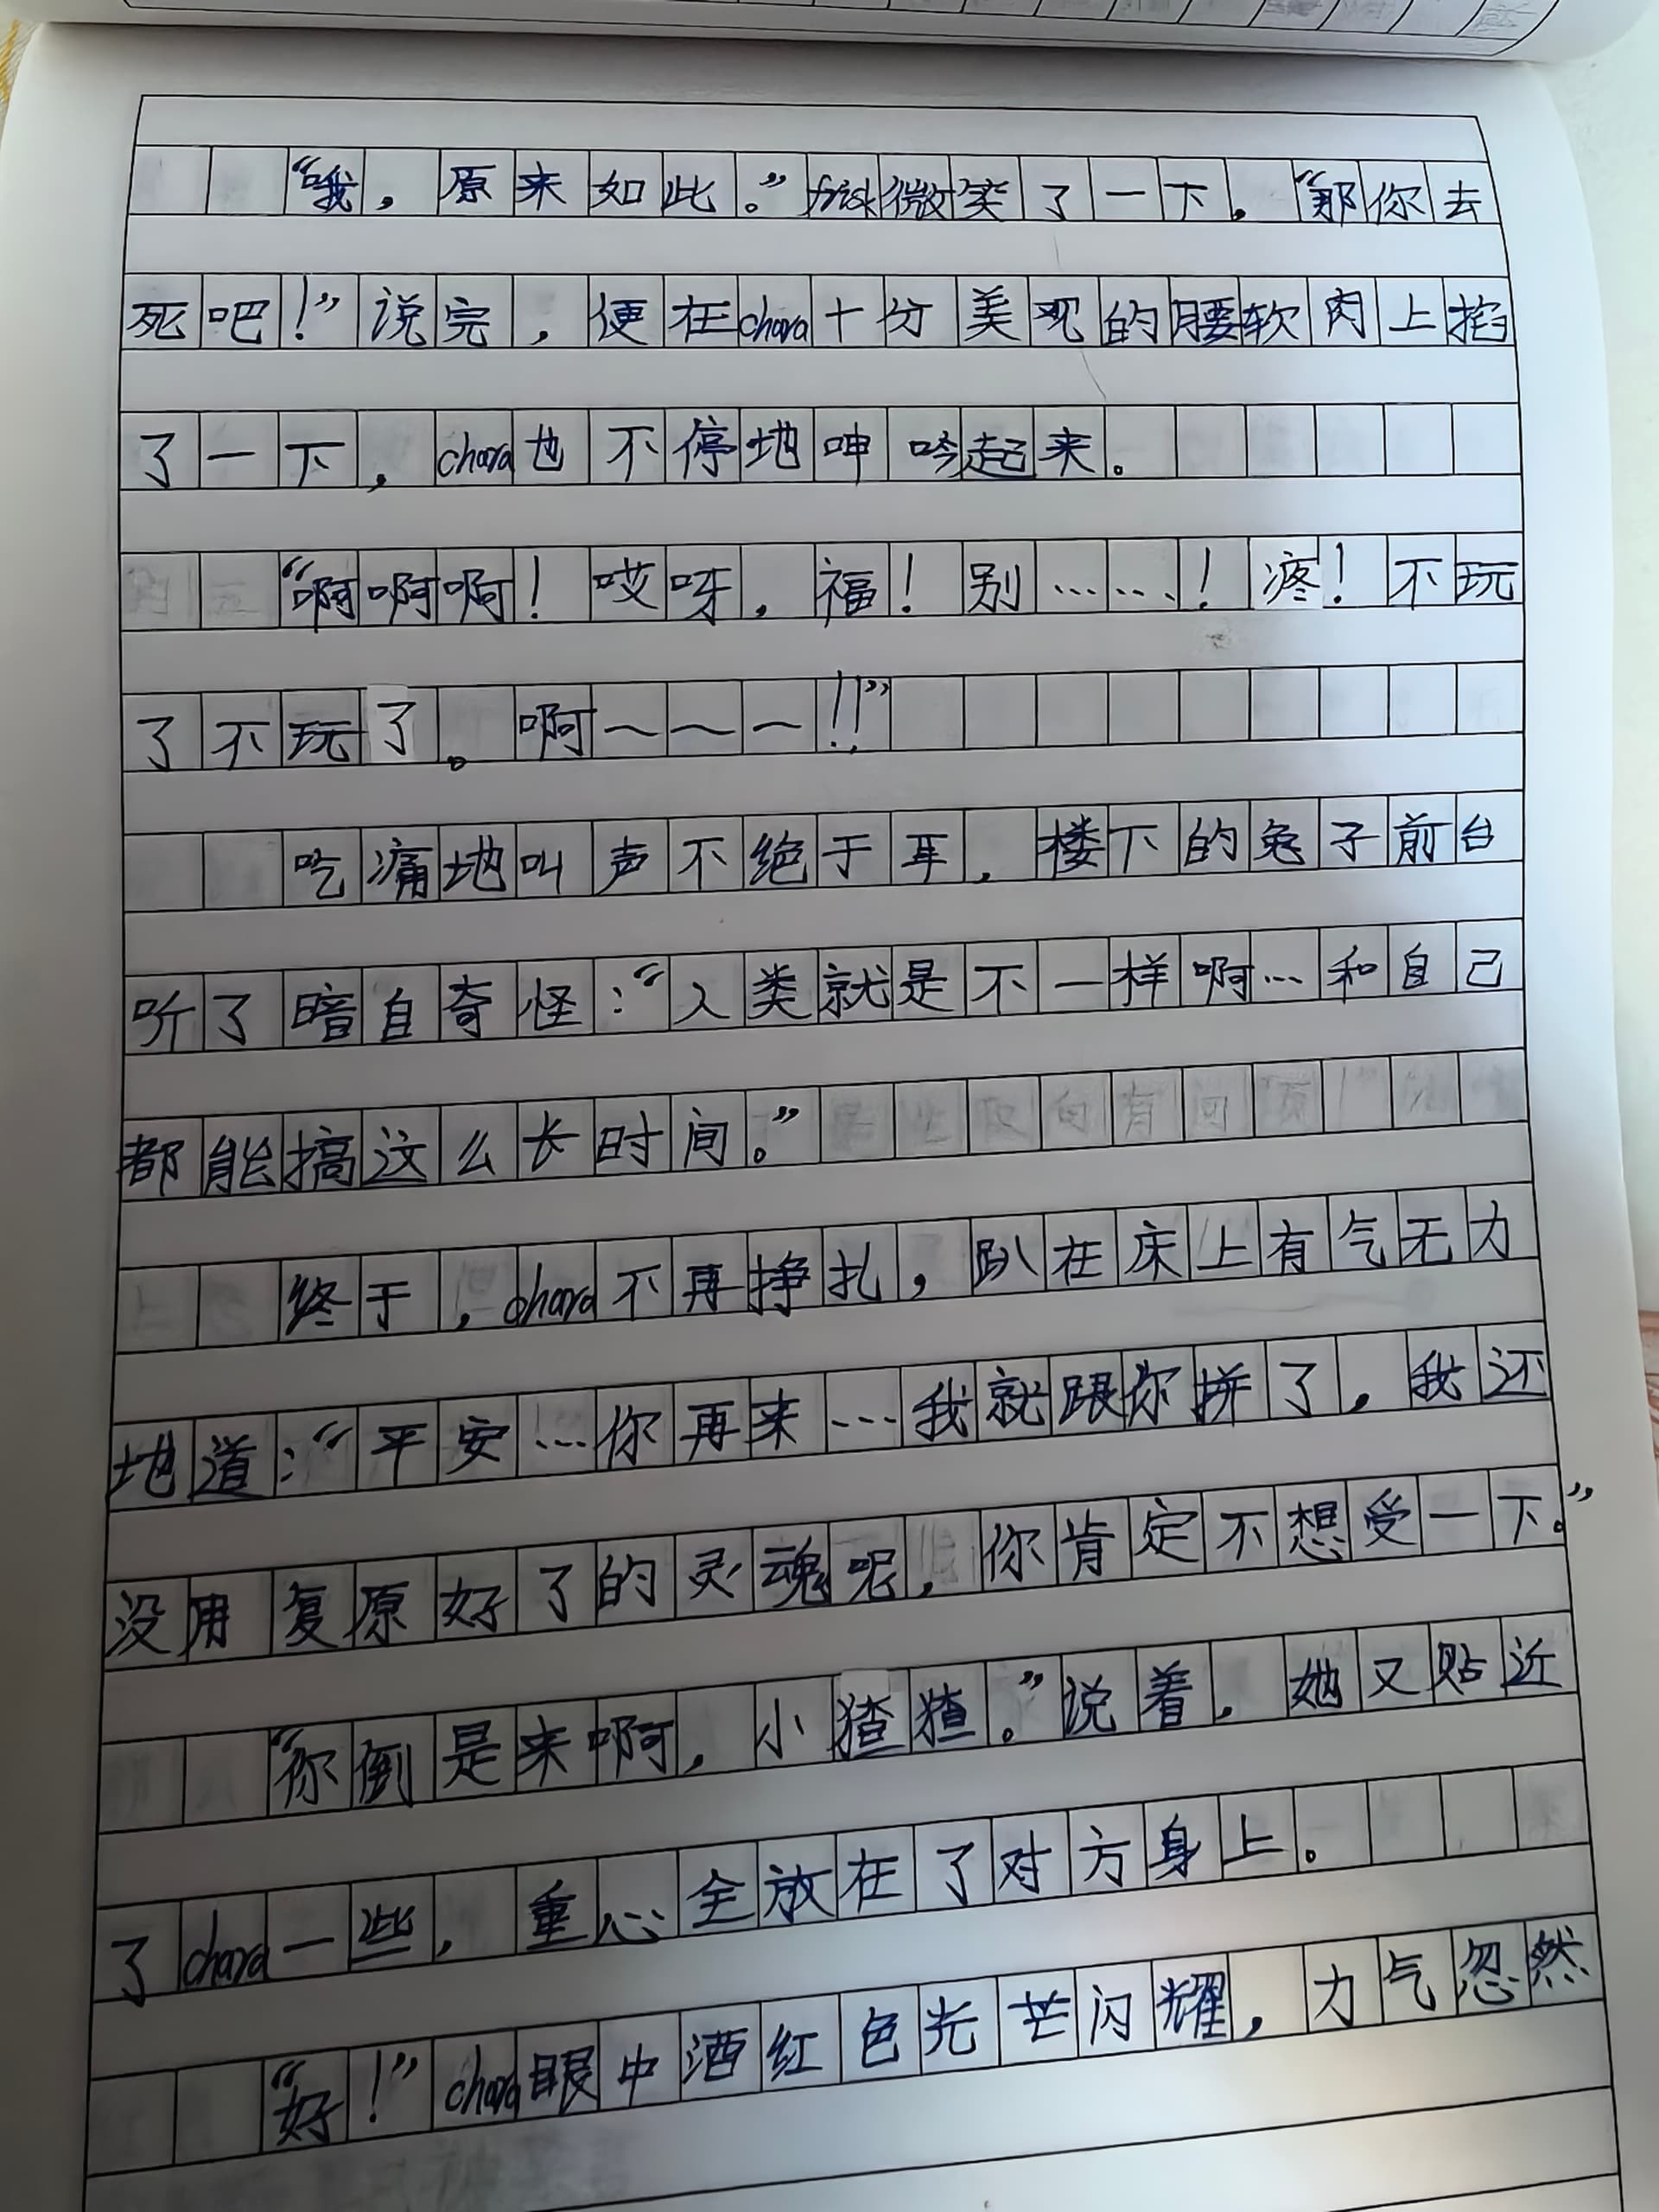 “哦，原来如此。”frisk微笑了一下。“那你去
死吧！”说完，便在chara十分美观的腰软肉上掐
了一下，chara也不停地呻吟起来。
“啊啊啊！哎呀，福！别……！疼！不玩
了不玩了。啊～～～！！”
吃痛地叫声不绝于耳，楼下的兔子前台
听了暗自奇怪：“人类就是不一样啊…和自己
都能搞这么长时间。”
终于，chara不再挣扎，趴在床上有气无力
地道：“平安…你再来…我就跟你拼了，我还
没用复原好了的灵魂呢，你肯定不想受一下。”
“你倒是来啊，小猹猹。”说着，她又贴近
了chara一些，重心全放在了对方身上。
“好！”chara眼中酒红色光芒闪耀，力气忽然